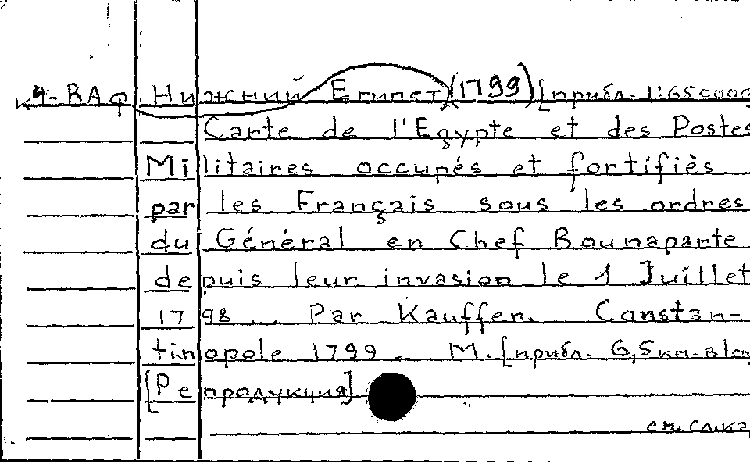 к4-ВАф Нижний Египет (1799) [прибл. 1:650000
Carte de l'Egypte et des Postes
Militaires occupés et fortifiés
par les Français sous les ordres
du Général en Chef Bounaparte
depuis leur invasion le 1 Juillet
1798. Par Kauffer. Constan-
tinopole 1799. М. [прибл. 6,5 км. в 1 см
[Репродукция]
см.